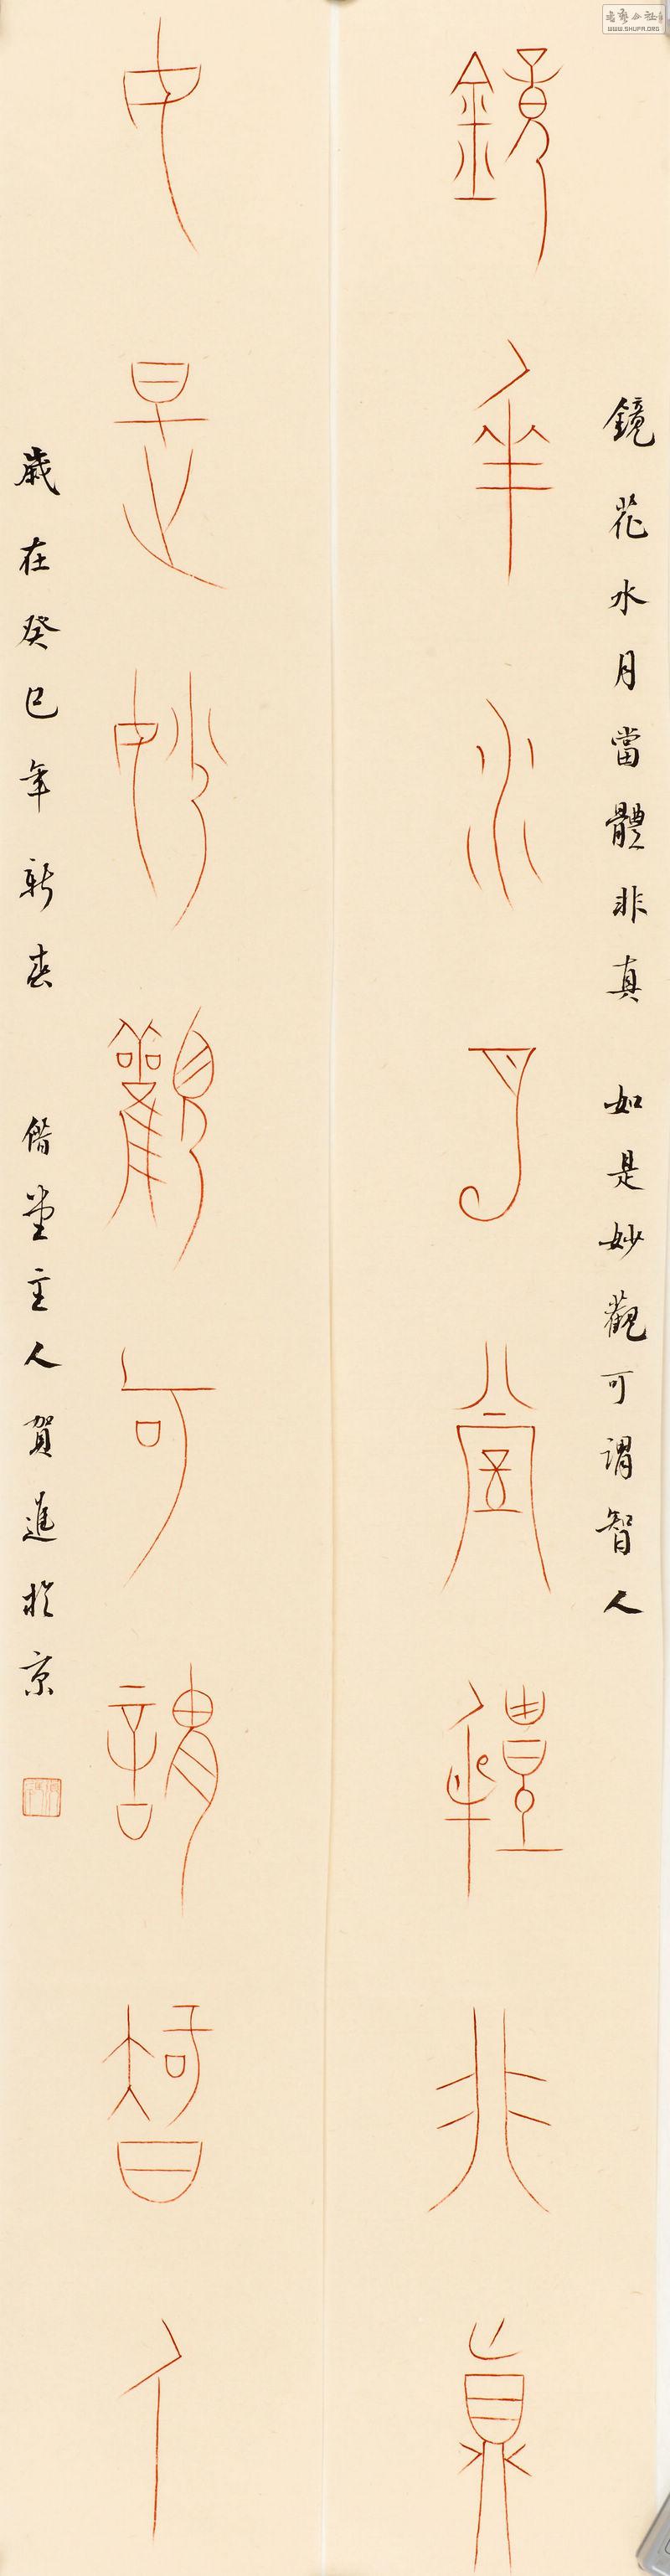 鏡花水月當體非真　如是妙觀可謂智人
鏡華水月當體非真
女是妙觀可謂智人
歲在癸巳年新春　偕堂主人賀進於京
WWW.SHUFA.ORG